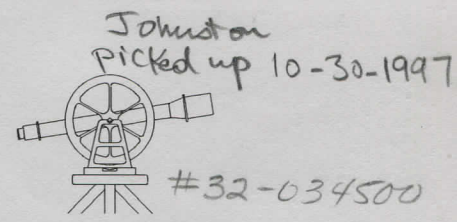 Johnston
picked up 10-30-1997
#32-034500